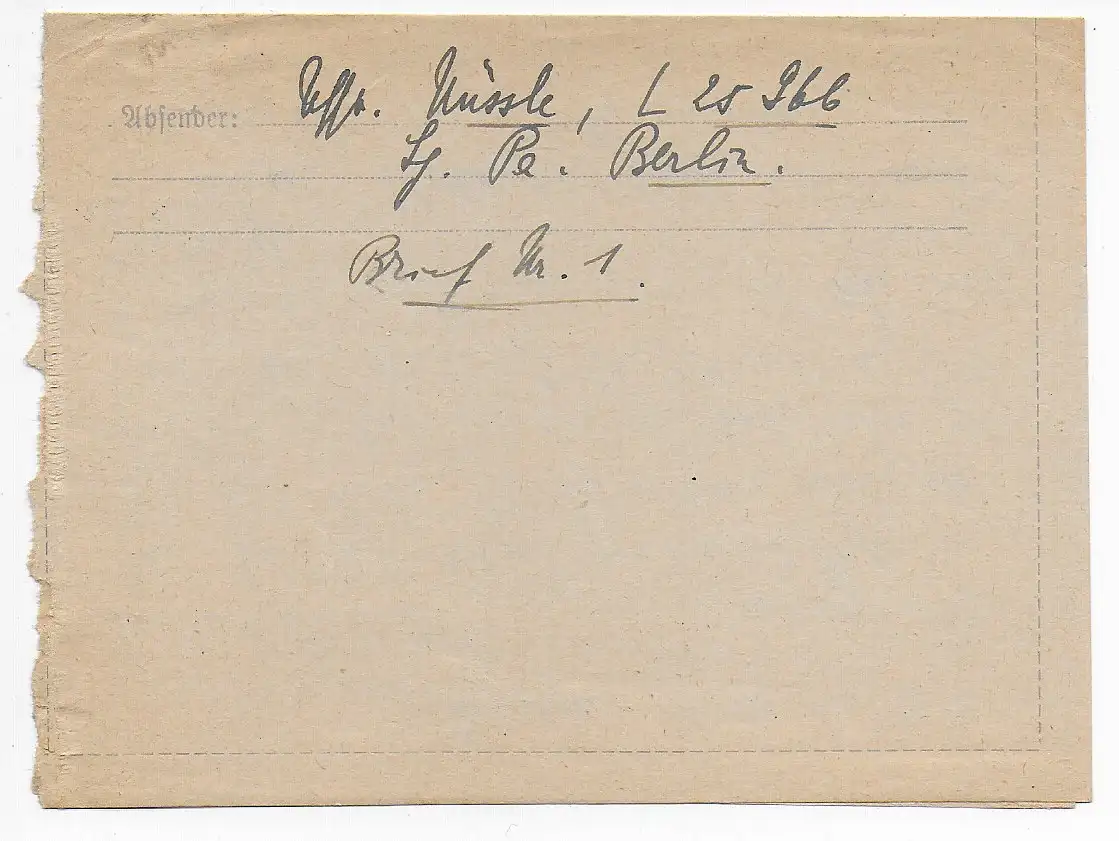 Absender: Uffz. Nüssle, L 25 366
Lg. Pa. Berlin.
Brief Nr. 1.